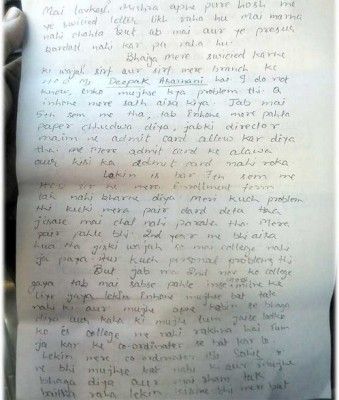 Mai lavkesh Mishra apne pure hosh me
ye suicied letter likh raha hu Mai marna
nahi chahta But ab mai aur ye presur
bardast nahi kar pa raha hu
Bhaiya mere suicied karne
ki wajah sirf aur sirf mere branch ke
HOD Mr Deepak Asarnani hai I do not
know, enko mujhse kya problem thi
inhone mere sath aisa kiya. Jab mai
5th sem me tha, tab Enhone mera pahla
paper chhudwa diya, jabki director
maim ne admit card allow kar diya
tha. Mere admit card ke alawa
aur kisi ka admit card nahi roka
Lekin is bar 7th sem me
HOD sir ne mera Enrollment form
tak nahi bharne diya. Meri kuch problem
thi kuki mera pair dard deta tha
jisase mai chal nahi pa raha tha. Mere
pair pahle bhi 2nd year me bhi aisa
hua tha jiski wajah se mai college nahi
ja paya kuch personal problem thi
But jab mai 2nd nov ko college
gaya tab mai sabse pahle inse milne ke
liye gaya lekin Enhone mujhse bat tak
nahi ki aur mujhe apne se bhaga
diya aur kaha ki mujhe tum jaise ladke
ko is college me nahi rakhna hai tum
ja kar ke co-ordinater se bat kar lo
Lekin mere co-ordinater
ne bhi mujhse bat nahi ki aur mujhe
bhaga diya aur mai sham tak
baitha raha lekin kisine bhi meri bat